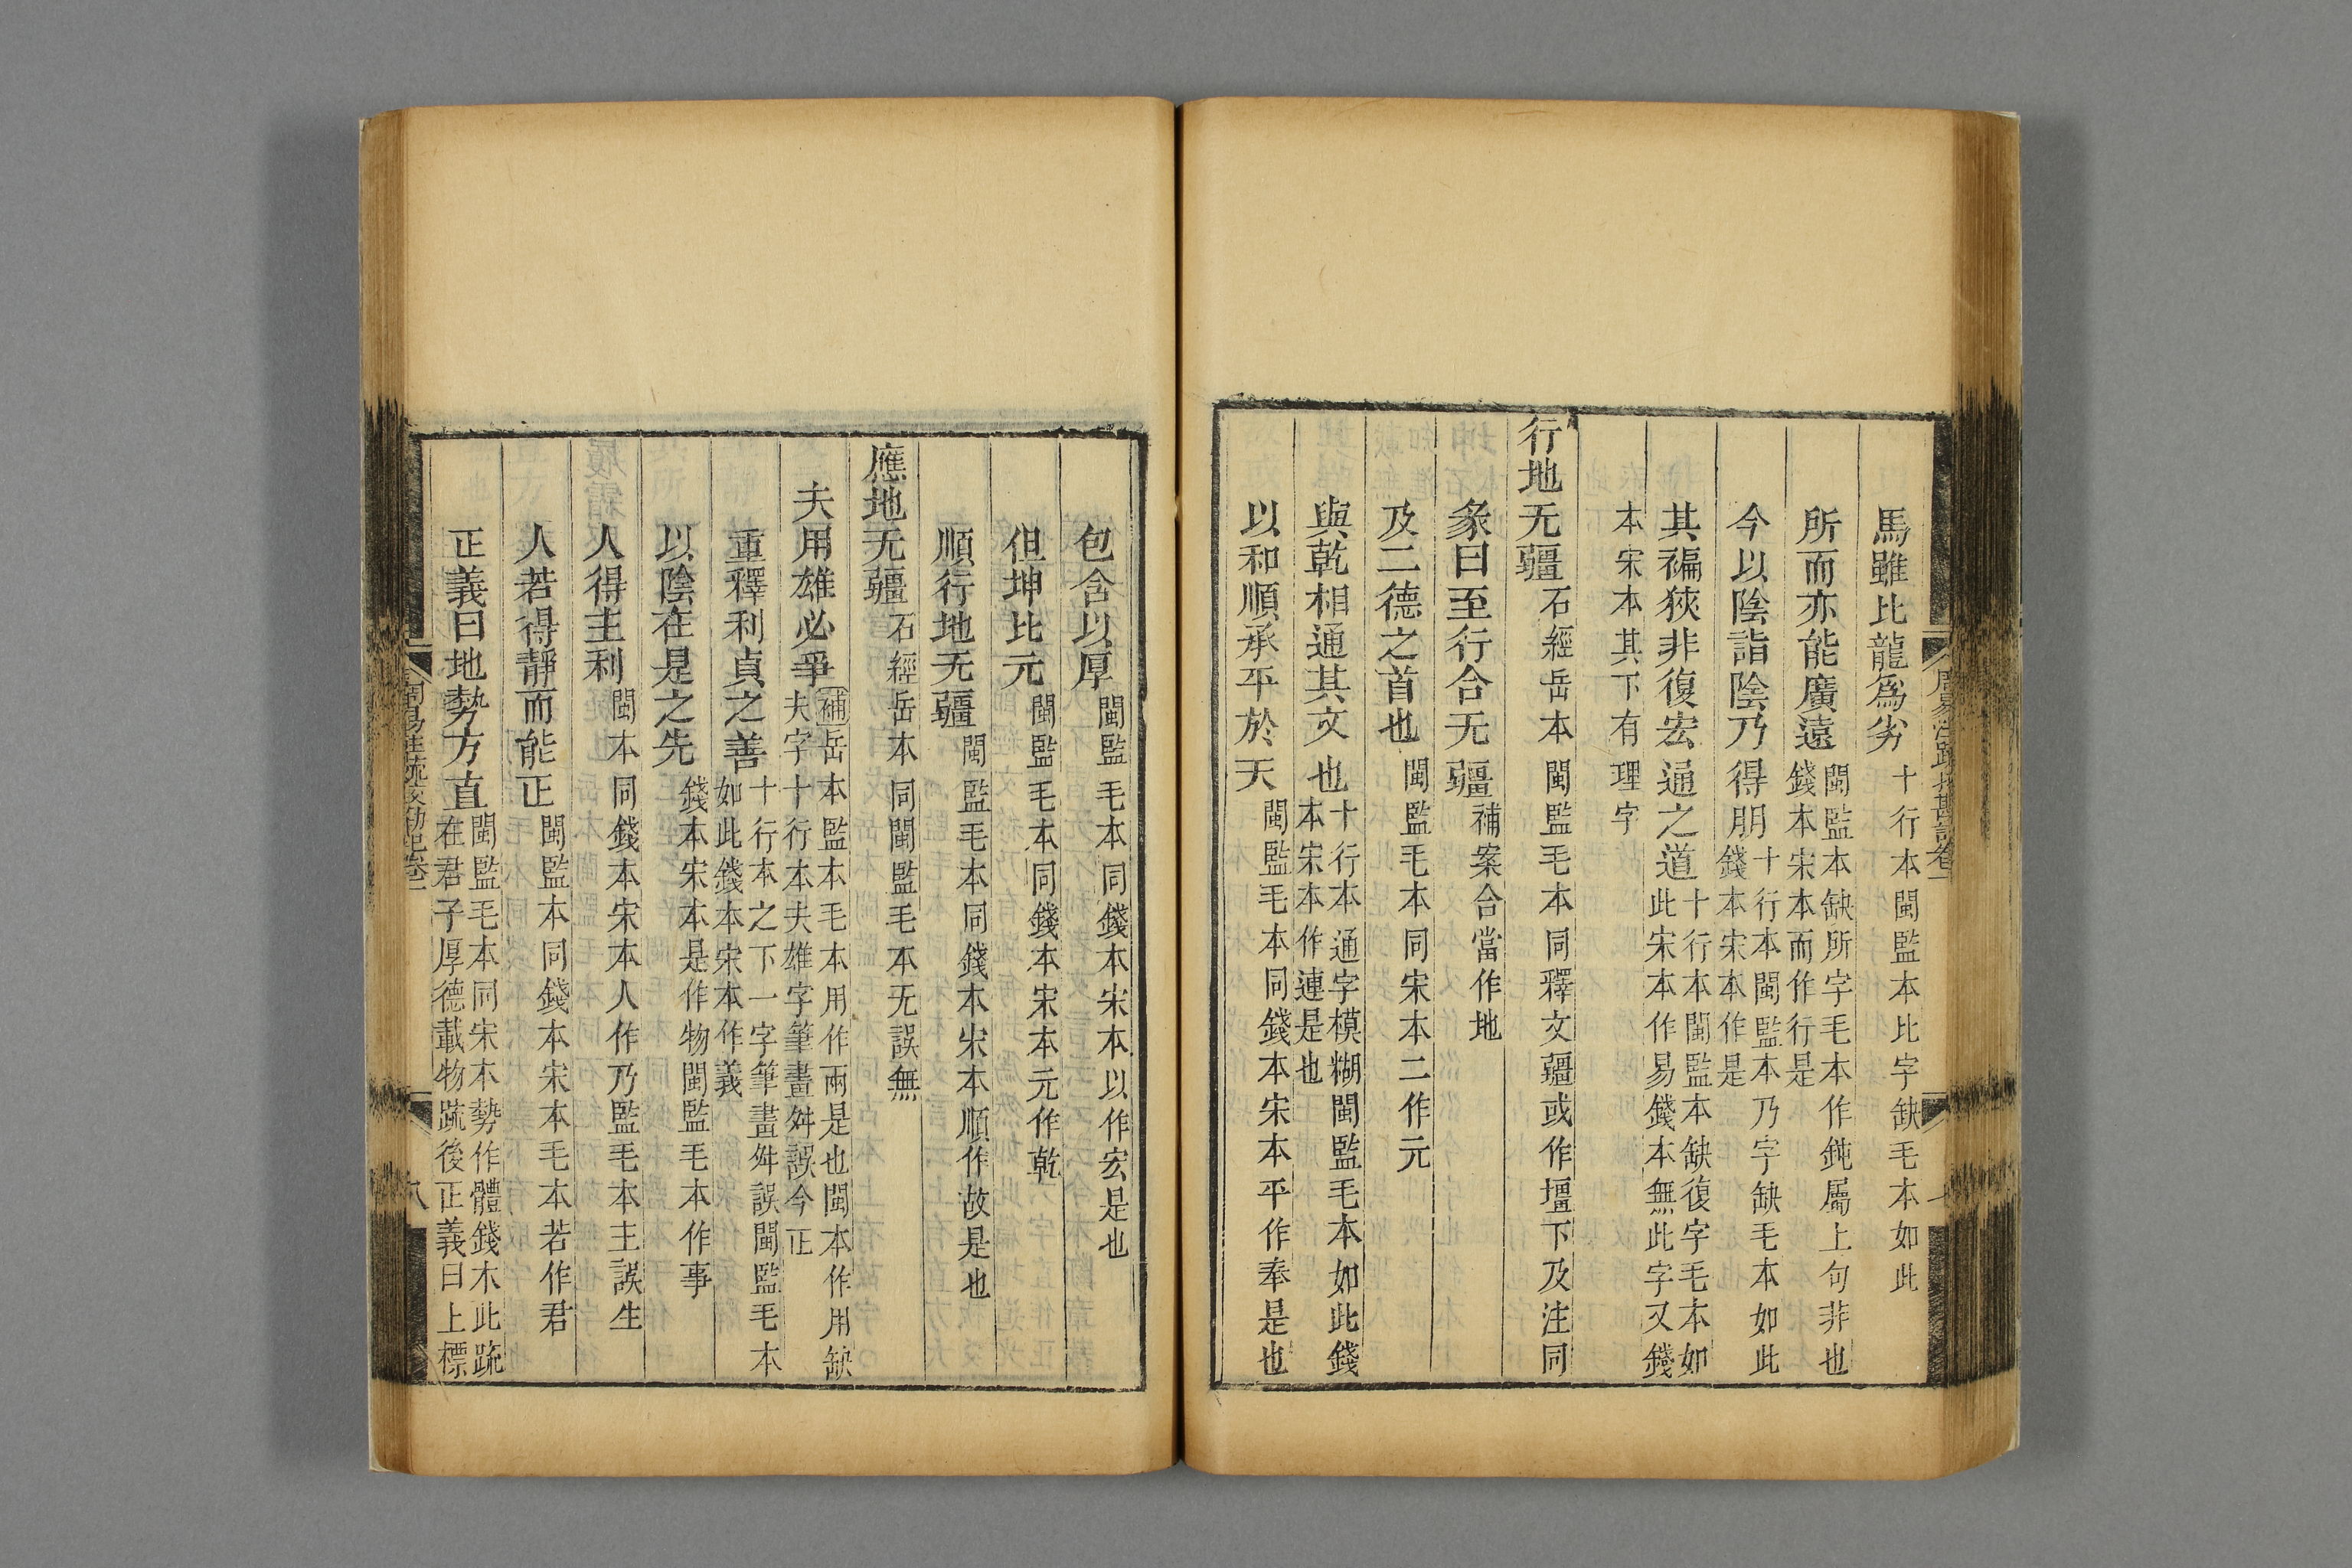 馬雖比龍爲劣十行本閩監本比字缺毛本如此
所而亦能廣遠閩監本缺所字毛本作鈍屬上句非也錢本宋本而作行是
今以陰詣陰乃得朋十行本閩監本乃字缺毛本如此錢本宋本作是
其褊狹非復宏通之道十行本閩監本缺復字毛本如此宋本作易錢本無此字又錢
本宋本其下有理字
行地无疆石經岳本閩監毛本同釋文疆或作壃下及注同
彖曰至行合无疆補案合當作地
及二德之首也閩監毛本同宋本二作元
與乾相通其文也十行本通字模糊閩監毛本如此錢本宋本作連是也
以和順承平於天閩監毛本同錢本宋本平作奉是也
周易注疏挍勘記卷一
包含以厚閩監毛本同錢本宋本以作宏是也
但坤比元閩監毛本同錢本宋本元作乾
順行地无疆閩監毛本同錢本宋本順作故是也
應地无疆石經岳本同閩監毛本无誤無
夫用雄必爭補岳本監本毛本用作兩是也閩本作用缺夫字十行本夫雄字筆畫舛誤今正
重釋利貞之善十行本之下一字筆畫舛誤閩監毛本如此錢本宋本作義
以陰在是之先錢本宋本是作物閩監毛本作事
人得主利閩本同錢本宋本人作乃監毛本主誤生
人若得靜而能正閩監本同錢本宋本毛本若作君
正義曰地勢方直閩監毛本同宋本勢作體錢本此疏在君子厚德載物疏後正義曰上標
周易注疏挍勘記卷一
八